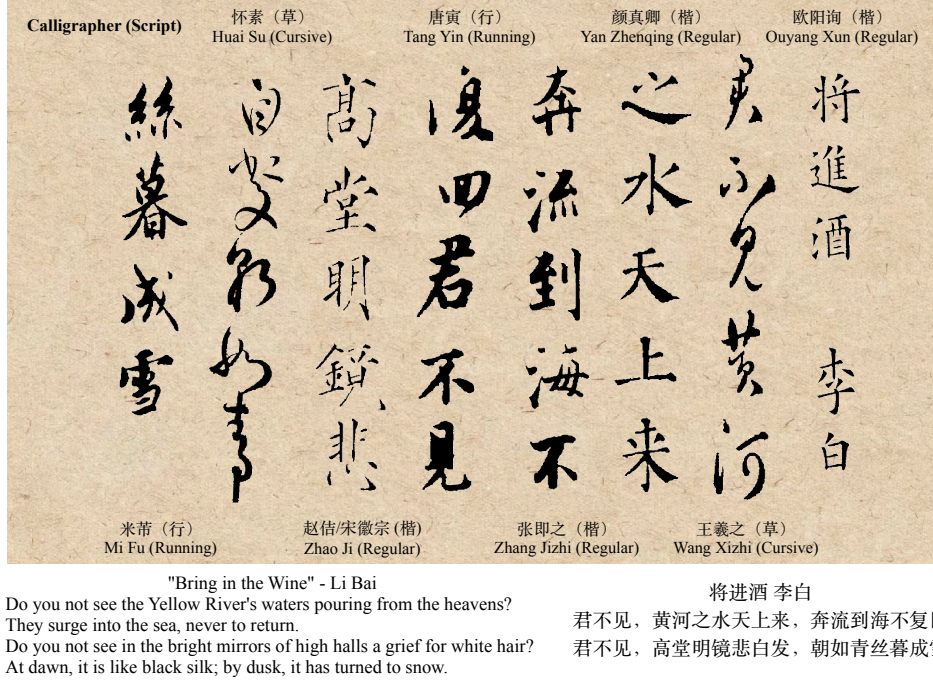 Calligrapher (Script)
怀素（草）
Huai Su (Cursive)
唐寅（行）
Tang Yin (Running)
颜真卿（楷）
Yan Zhenqing (Regular)
欧阳询（楷）
Ouyang Xun (Regular)
将進酒 李白
君不見黄河
之水天上来
奔流到海不
復回君不見
髙堂明鏡悲
白髮朝如青
絲暮成雪
米芾（行）
Mi Fu (Running)
赵佶/宋徽宗 (楷)
Zhao Ji (Regular)
张即之（楷）
Zhang Jizhi (Regular)
王羲之（草）
Wang Xizhi (Cursive)
"Bring in the Wine" - Li Bai
Do you not see the Yellow River's waters pouring from the heavens?
They surge into the sea, never to return.
Do you not see in the bright mirrors of high halls a grief for white hair?
At dawn, it is like black silk; by dusk, it has turned to snow.
将进酒 李白
君不见，黄河之水天上来，奔流到海不复
君不见，高堂明镜悲白发，朝如青丝暮成